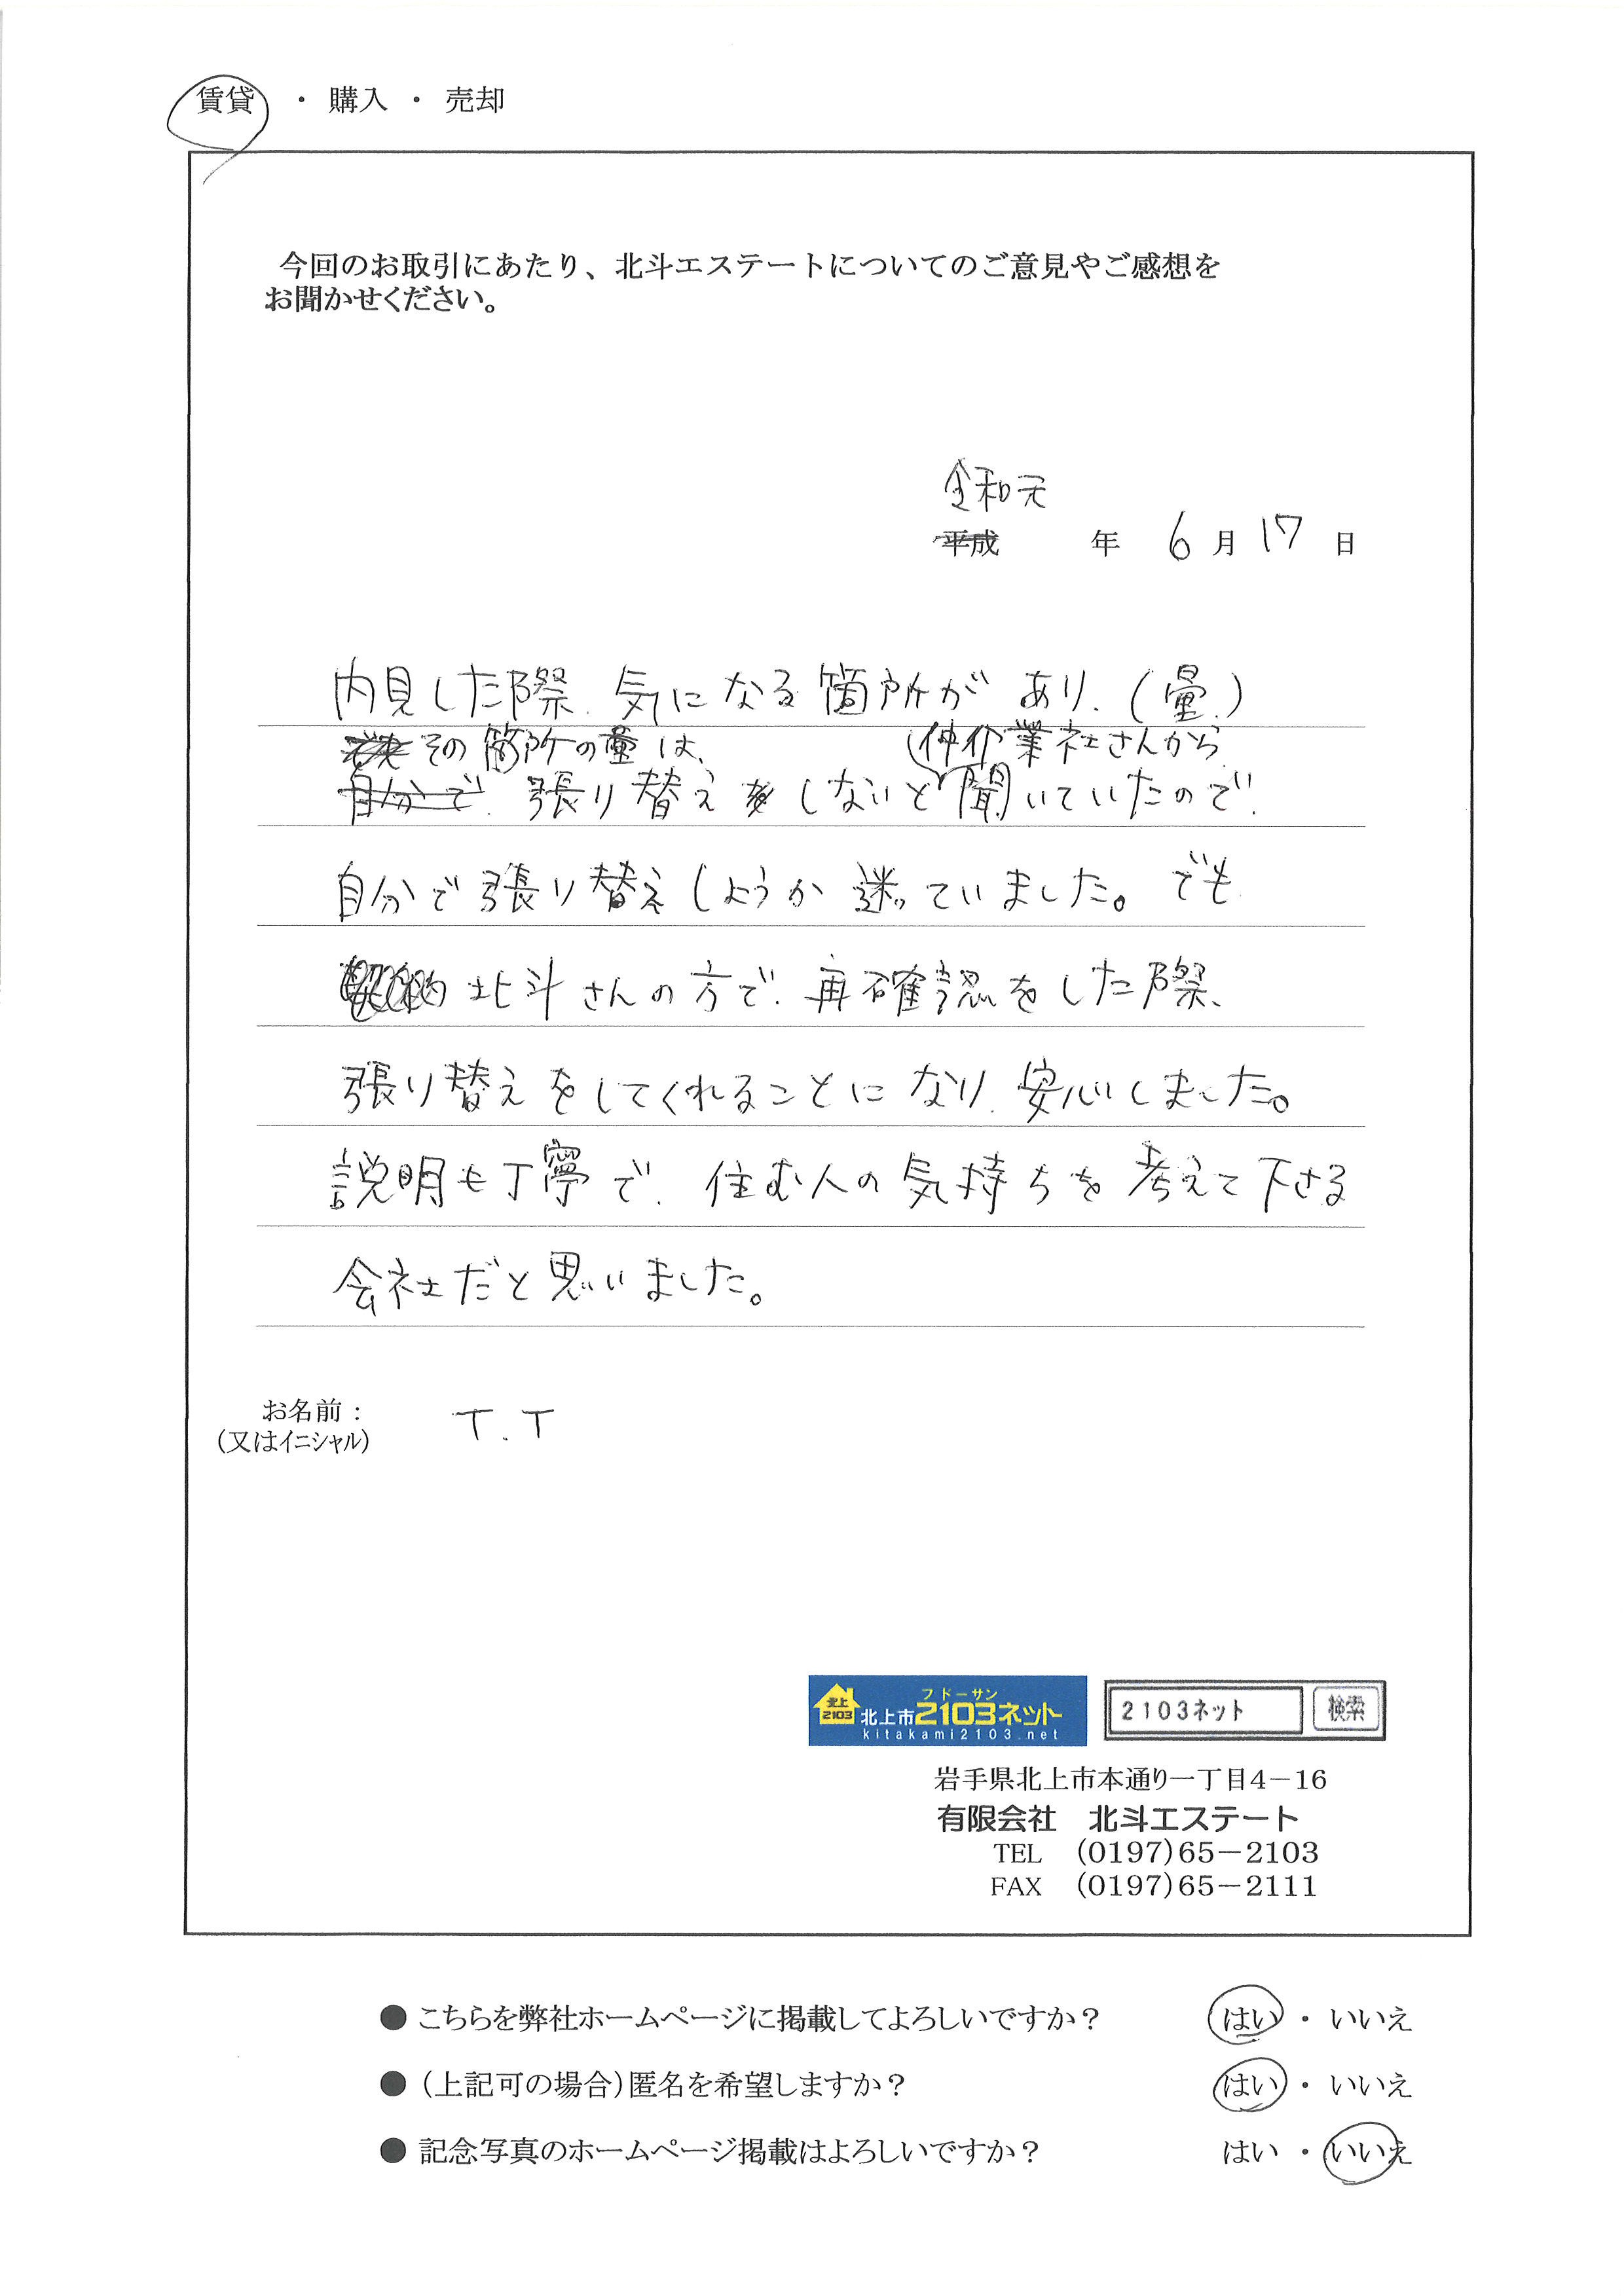 賃貸 ・ 購入 ・ 売却
今回のお取引にあたり、北斗エステートについてのご意見やご感想を
お聞かせください。
令和元
平成 年 6月17日
内見した際、気になる箇所があり、(畳)
その箇所の畳は、 仲介業社さんから
自分で 張り替えをしないと聞いていたので、
自分で張り替えしようか迷っていました。でも
契約 北斗さんの方で、再確認をした際、
張り替えをしてくれることになり、安心しました。
説明も丁寧で、住む人の気持ちを考えて下さる
会社だと思いました。
お名前:
(又はイニシャル) T.T
フドーサン
北上
2103 北上市2103ネット
kitakami2103.net
2103ネット 検索
岩手県北上市本通り一丁目4-16
有限会社 北斗エステート
TEL (0197)65-2103
FAX (0197)65-2111
● こちらを弊社ホームページに掲載してよろしいですか? はい ・ いいえ
● (上記可の場合)匿名を希望しますか? はい ・ いいえ
● 記念写真のホームページ掲載はよろしいですか? はい ・ いいえ